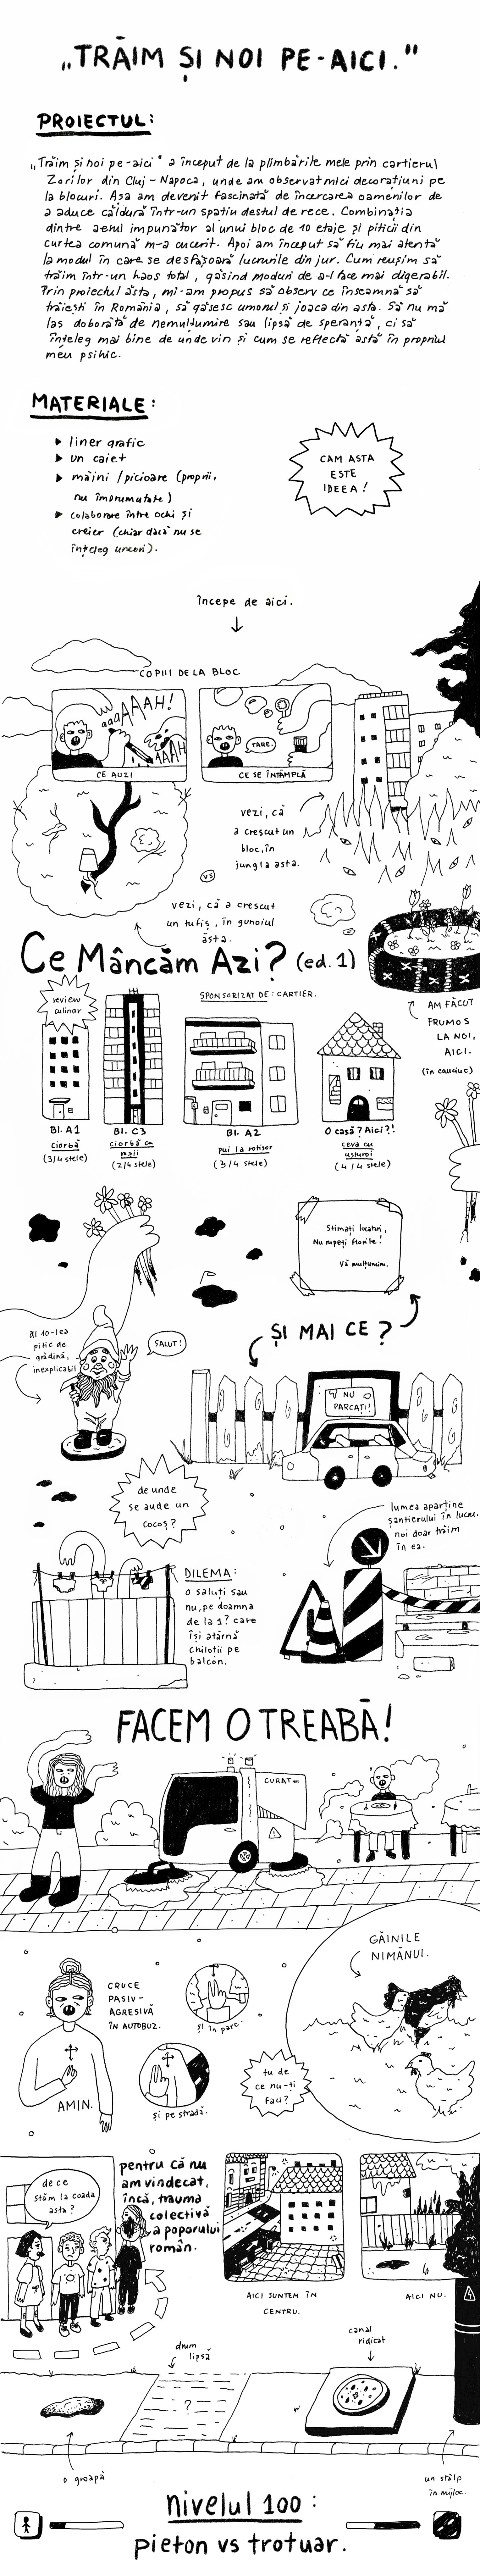 „TRĂIM ȘI NOI PE-AICI."
PROIECTUL:
„Trăim și noi pe-aici" a început de la plimbările mele prin cartierul
Zorilor din Cluj-Napoca, unde am observat mici decorațiuni pe
la blocuri. Așa am devenit fascinată de încercarea oamenilor de
a aduce căldură într-un spațiu destul de rece. Combinația
dintre aerul impunător al unui bloc de 10 etaje și piticii din
curtea comună m-a cucerit. Apoi am început să fiu mai atentă
la modul în care se desfășoară lucrurile din jur. Cum reușim să
trăim într-un haos total, găsind moduri de a-l face mai digerabil.
Prin proiectul ăsta, mi-am propus să observ ce înseamnă să
trăiești în România, să găsesc umorul și joaca din asta. Să nu mă
las doborâtă de nemulțumire sau lipsă de speranță, ci să
înțeleg mai bine de unde vin și cum se reflectă asta în propriul
meu psihic.
MATERIALE:
liner grafic
un caiet
mâini/picioare (proprii,
nu împrumutate)
colaborare între ochi și
creier (chiar dacă nu se
înțeleg uneori).
CAM ASTA
ESTE
IDEEA!
începe de aici.
COPIII DE LA BLOC
aaaAAAAH!
AAAH
CE AUZI
TARE.
CE SE ÎNTÂMPLĂ
vezi, că
a crescut un
bloc, în
jungla asta.
VS
vezi, că a crescut
un tufiș, în gunoiul
ăsta.
Ce Mâncăm Azi? (ed. 1)
review
culinar
SPONSORIZAT DE: CARTIER.
AM FĂCUT
FRUMOS
LA NOI,
AICI.
(în cauciuc)
Bl. A1
ciorbă
(3/4 stele)
Bl. C3
ciorbă cu
(2/4 stele)
Bl. A2
pui la rotisor
(3/4 stele)
O casă? Aici?!
ceva cu
usturoi
(4/4 stele)
Stimați locatari,
Nu rupeți florile!
Vă mulțumim.
al 10-lea
pitic de
grădină,
inexplicabil
SALUT!
ȘI MAI CE?
NU
PARCAȚI!
de unde
se aude un
cocoș?
lumea aparține
șantierului în lucru.
noi doar trăim
în ea.
DILEMA:
o saluți sau
nu, pe doamna
de la 1? care
își atârnă
chiloții pe
balcon.
FACEM O TREABĂ!
CURAT
GĂINILE
NIMĂNUI.
CRUCE
PASIV-
AGRESIVĂ
ÎN AUTOBUZ.
AMIN.
și în parc.
și pe stradă.
tu de
ce nu-ți
faci?
de ce
stăm la coada
asta?
pentru că nu
am vindecat,
încă, trauma
colectivă
a poporului
român.
AICI SUNTEM ÎN
CENTRU.
AICI NU.
drum
lipsă
canal
ridicat
?
o groapă
un stâlp
în mijloc.
nivelul 100:
pieton vs trotuar.